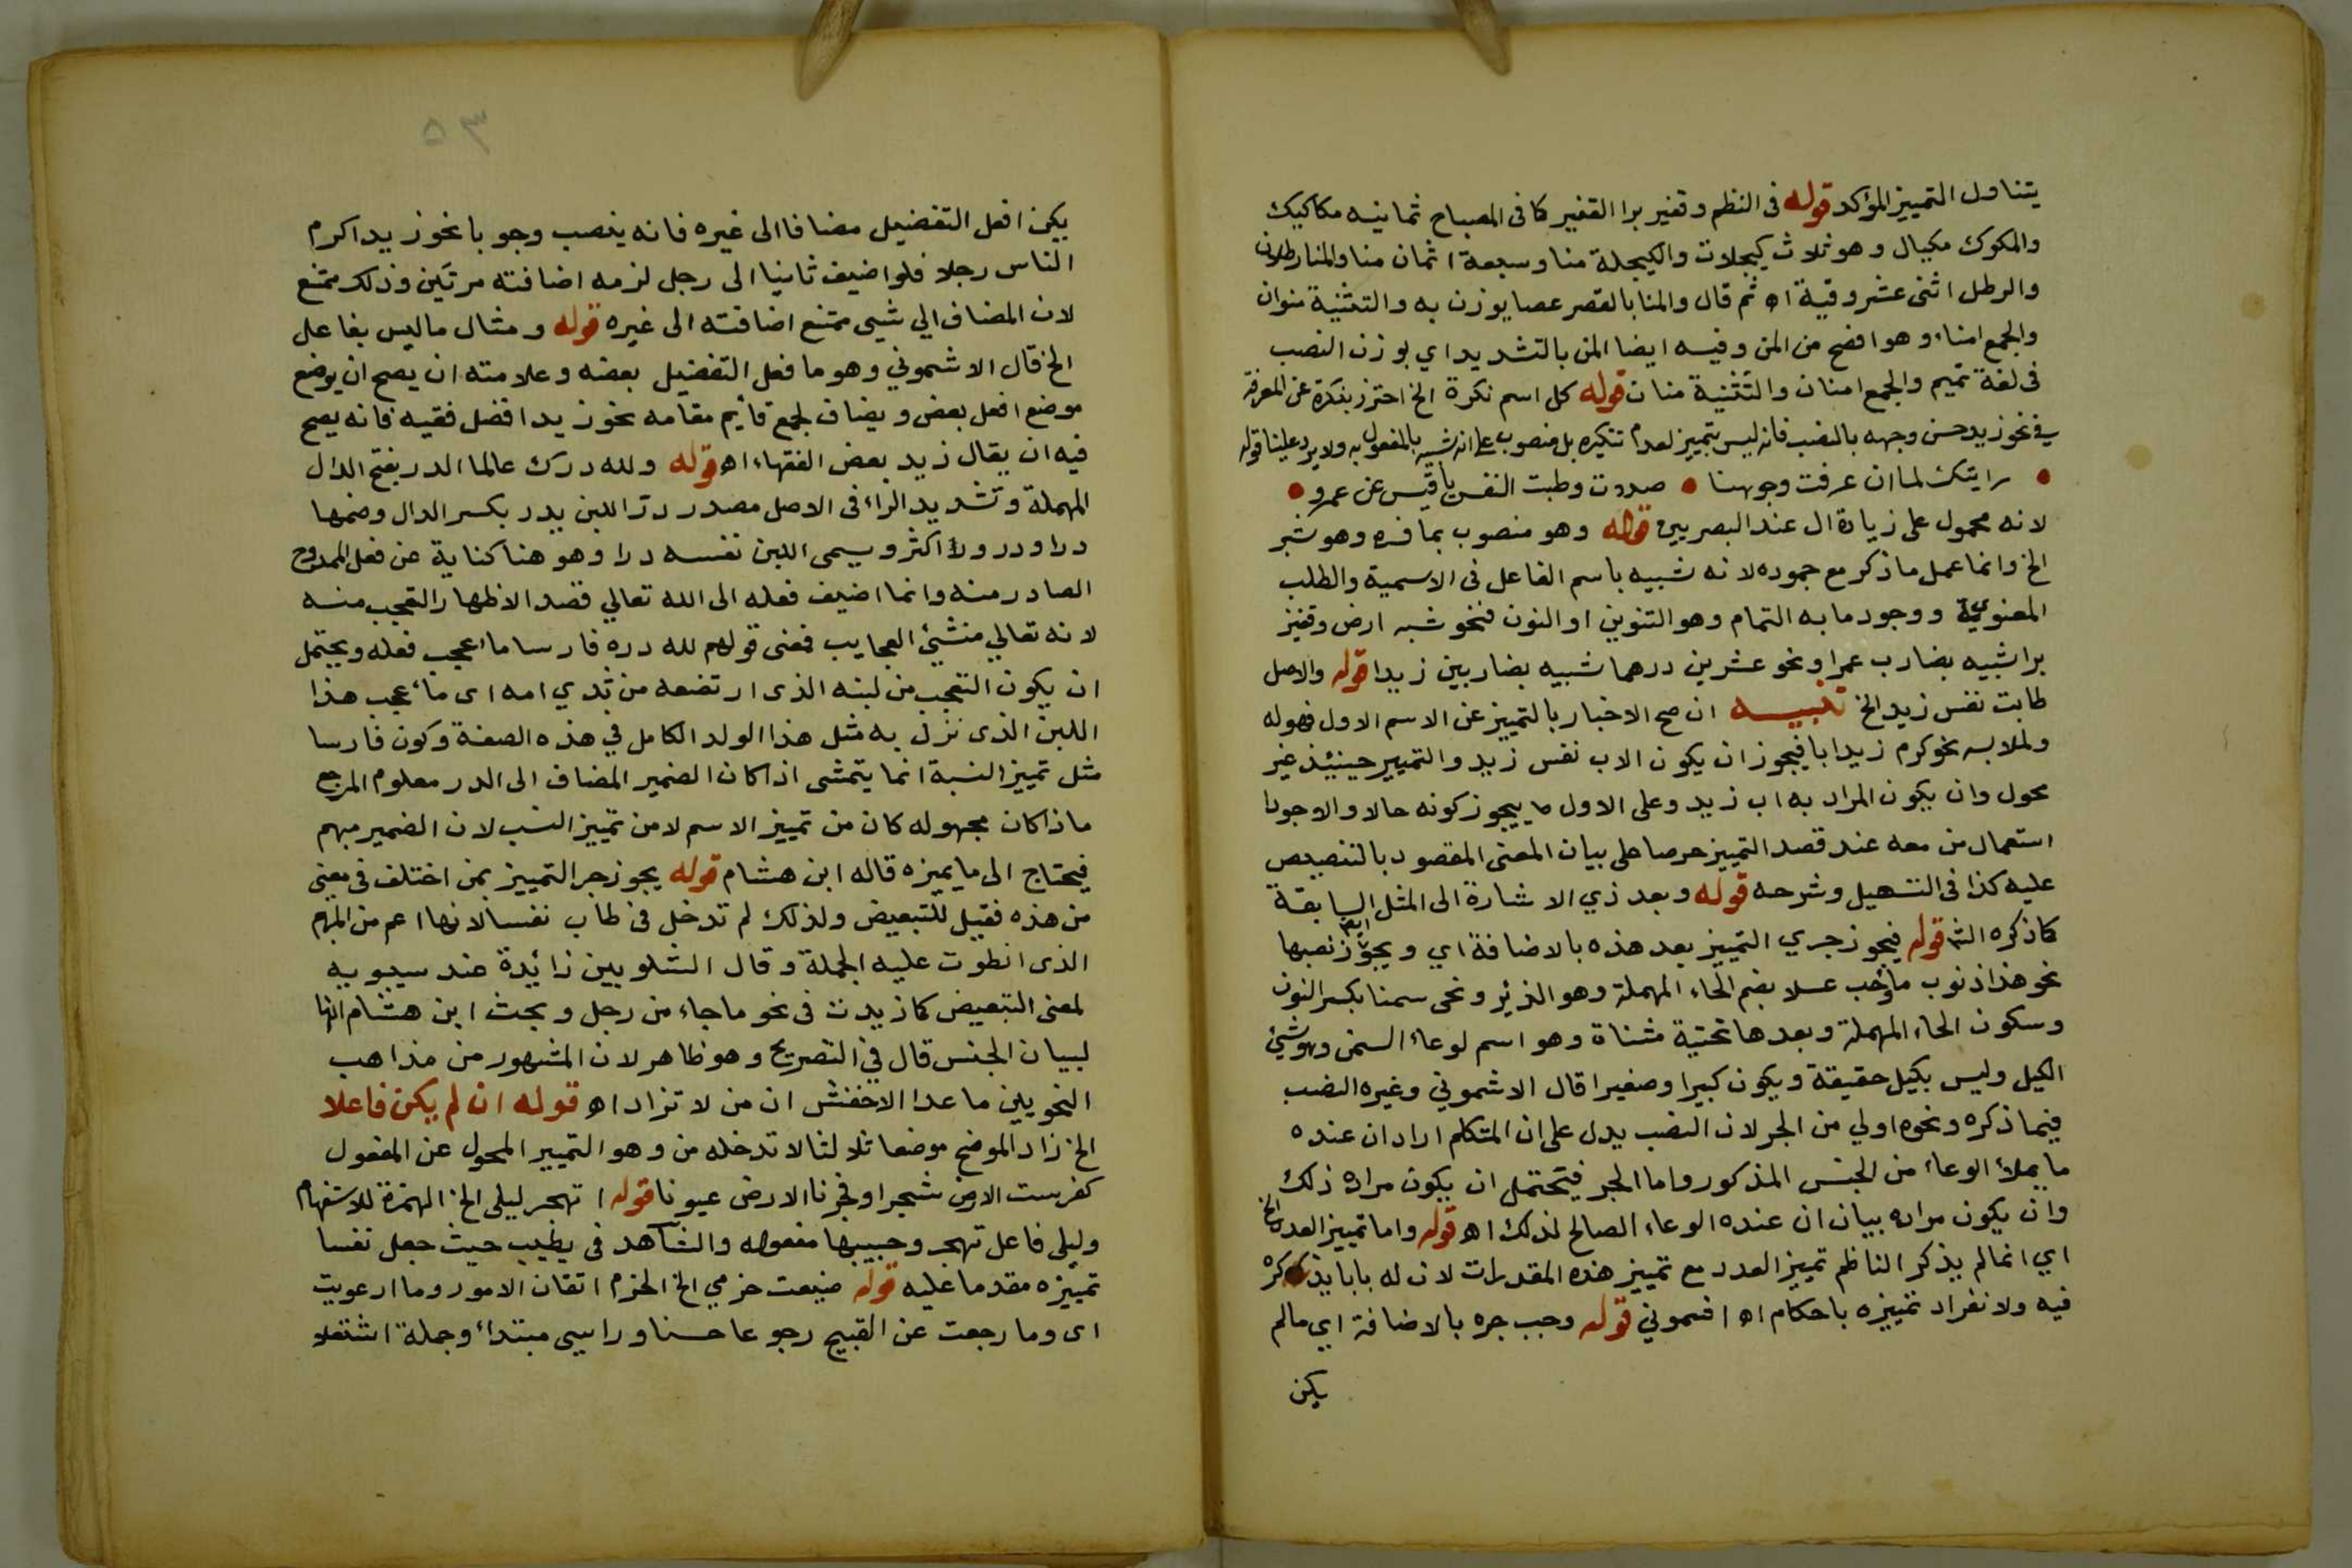 يتناول التمييز المؤكد قوله فى النظم وقفيز برا القفيز كما فى المصباح ثمانيه مكاكيك
والمكوك مكيال وهو ثلاث كيجلات والكيجلة منا وسبعة اثمان منا والمنا رطلان
والرطل اثنى عشر وقية اه ثم قال والمنا بالقصر عصا يوزن به والتثنية منوان
والجمع امناء وهو افصح من المن وفيه ايضا المن بالتشديد اي بوزن النصب
فى لغة تميم والجمع امنان والتثنية منان قوله كل اسم نكرة الخ احترز بنكرة عن المعرفة
في نحو زيد حسن وجهه بالنصب فانه ليس بتمييز لعدم تنكيره بل منصوب على انه شبيه بالمفعول به ولا يرد علينا قوله
رايتك لما ان عرفت وجوهنا صددت وطبت النفس يا قيس عن عمرو
لانه محمول على زيادة ال عند البصريين قوله وهو منصوب بما فسره وهو شبر
الخ وانما عمل ما ذكر مع جموده لانه شبيه باسم الفاعل فى الاسمية والطلب
المعنوية ووجود ما به التمام وهو التنوين او النون فنحو شبر ارض وقفيز
برا شبيه بضارب عمرا ونحو عشرين درهما شبيه بضاربين زيدا قوله والاصل
طابت نفس زيد الخ تنبيه ان صح الاخبار بالتمييز عن الاسم الاول فهو له
ولملابسه نحو كرم زيد ابا فيجوز ان يكون الاب نفس زيد والتمييز حينيذ غير
محول وان يكون المراد به اب زيد وعلى الاول يجوز كونه حالا والاجود
استعمال من معه عند قصد التمييز حرصا على بيان المعنى المقصود بالتنصيص
عليه كذا فى التسهيل وشرحه قوله وبعد ذي الاشارة الى المثل السابقة
كما ذكره الش قوله فيجوز جري التمييز بعد هذه بالاضافة اي ويجوز نصبها
نحو هذا ذنوب ماء وحب عسلا بضم الحاء المهملة وهو الزير ونحى سمنا بكسر النون
وسكون الحاء المهملة وبعدها تحتية مثناة وهو اسم لوعاء السمن وهو شئ
الكيل وليس بكيل حقيقة ويكون كبيرا وصغيرا قال الاشموني وغيره النصب
فيما ذكره ونحوه اولي من الجر لان النصب يدل على ان المتكلم اراد ان عنده
ما يملأ الوعاء من الجنس المذكور واما الجر فيحتمل ان يكون مراده ذلك
وان يكون مراده بيان ان عنده الوعاء الصالح لذلك اه قوله واما تمييز العدد الخ
اي انما لم يذكر الناظم تمييز العدد مع تمييز هذه المقدرات لان له بابا يذكره
فيه ولانفراد تمييزه باحكام اه اشموني قوله وجب جره بالاضافة اي ما لم
يكن
٥٣
يكن افعل التفضيل مضافا الى غيره فانه ينصب وجوبا نحو زيد اكرم
الناس رجلا فلو اضيف ثانيا الى رجل لزمه اضافته مرتين وذلك ممتنع
لان المضاف الي شيى ممتنع اضافته الى غيره قوله ومثال ما ليس بفاعل
الخ قال الاشموني وهو ما فعل التفضيل بعضه وعلامته ان يصح ان يوضع
موضع افعل بعض ويضاف لجمع قايم مقامه نحو زيد افضل فقيه فانه يصح
فيه ان يقال زيد بعض الفقهاء اه قوله ولله درك عالما الدر بفتح الدال
المهملة وتشديد الراء فى الاصل مصدر در اللبن يدر بكسر الدال وضمها
درا ودرورا اكثر ويسمى اللبن نفسه درا وهو هنا كناية عن فعل الممدوح
الصادر منه وانما اضيف فعله الى الله تعالي قصد الاظهار التعجب منه
لانه تعالي منشئ العجايب فمعنى قولهم لله دره فارسا ما اعجب فعله ويحتمل
ان يكون التعجب من لبنه الذى ارتضعه من ثدي امه اى ما اعجب هذا
اللبن الذى نزل به مثل هذا الولد الكامل في هذه الصفة وكون فارسا
مثل تمييز النسبة انما يتمشى اذا كان الضمير المضاف الى الدر معلوم المرجع
ماذا كان مجهوله كان من تمييز الاسم لا من تمييز النسب لان الضمير مبهم
فيحتاج الى ما يميزه قاله ابن هشام قوله يجوز جر التمييز بمن اختلف فى معنى
من هذه فقيل للتبعيض ولذلك لم تدخل فى طاب نفسا لانها اعم من المبهم
الذى انطوت عليه الجملة وقال الشلوبين زائدة عند سيبويه
لمعنى التبعيض كما زيدت فى نحو ما جاء من رجل وبحث ابن هشام انها
لبيان الجنس قال في التصريح وهو ظاهر لان المشهور من مذاهب
النحويين ما عدا الاخفش ان من لا تزاد اه قوله ان لم يكن فاعلا
الخ زاد الموضح موضعا ثالثا لا تدخله من وهو التمييز المحول عن المفعول
كغرست الارض شجرا وفجرنا الارض عيونا قوله اتهجر ليلى الخ الهمزة للاستفهام
وليلى فاعل تهجر وحبيبها مفعوله والشاهد فى يطيب حيث جعل نفسا
تمييزه مقدما عليه قوله ضيعت حزمي الخ الحزم اتقان الامور وما ارعويت
اى وما رجعت عن القبيح رجوعا حسنا وراسي مبتداء وجملة اشتعلا